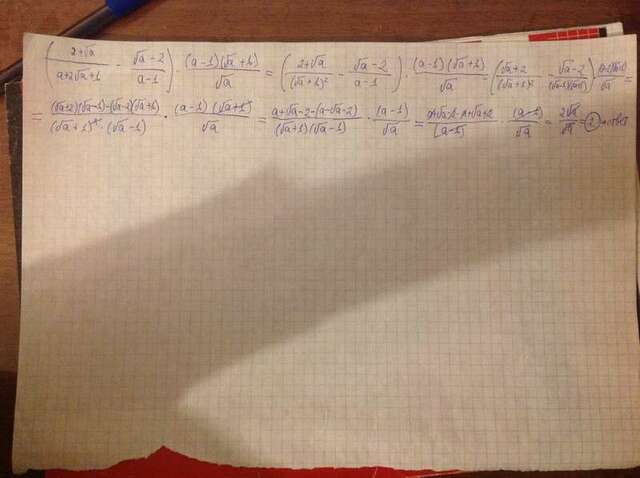 (\frac{2+√a}{a+2√a+1} - \frac{√a-2}{a-1}) \cdot \frac{(a-1)(√a+1)}{√a} = (\frac{2+√a}{(√a+1)^2} - \frac{√a-2}{a-1}) \cdot \frac{(a-1)(√a+1)}{√a} = (\frac{√a+2}{(√a+1)^2} - \frac{√a-2}{(√a-1)(√a+1)}) \frac{(a-1)(√a+1)}{√a} =
= \frac{(√a+2)(√a-1)-(√a-2)(√a+1)}{(√a+1)^2 \cdot (√a-1)} \cdot \frac{(a-1)(√a+1)}{√a} = \frac{a+√a-2-(a-√a-2)}{(√a+1)(√a-1)} \cdot \frac{(a-1)}{√a} = \frac{a+√a-2-a+√a+2}{(a-1)} \cdot \frac{(a-1)}{√a} = \frac{2√a}{√a} = 2 → ответ